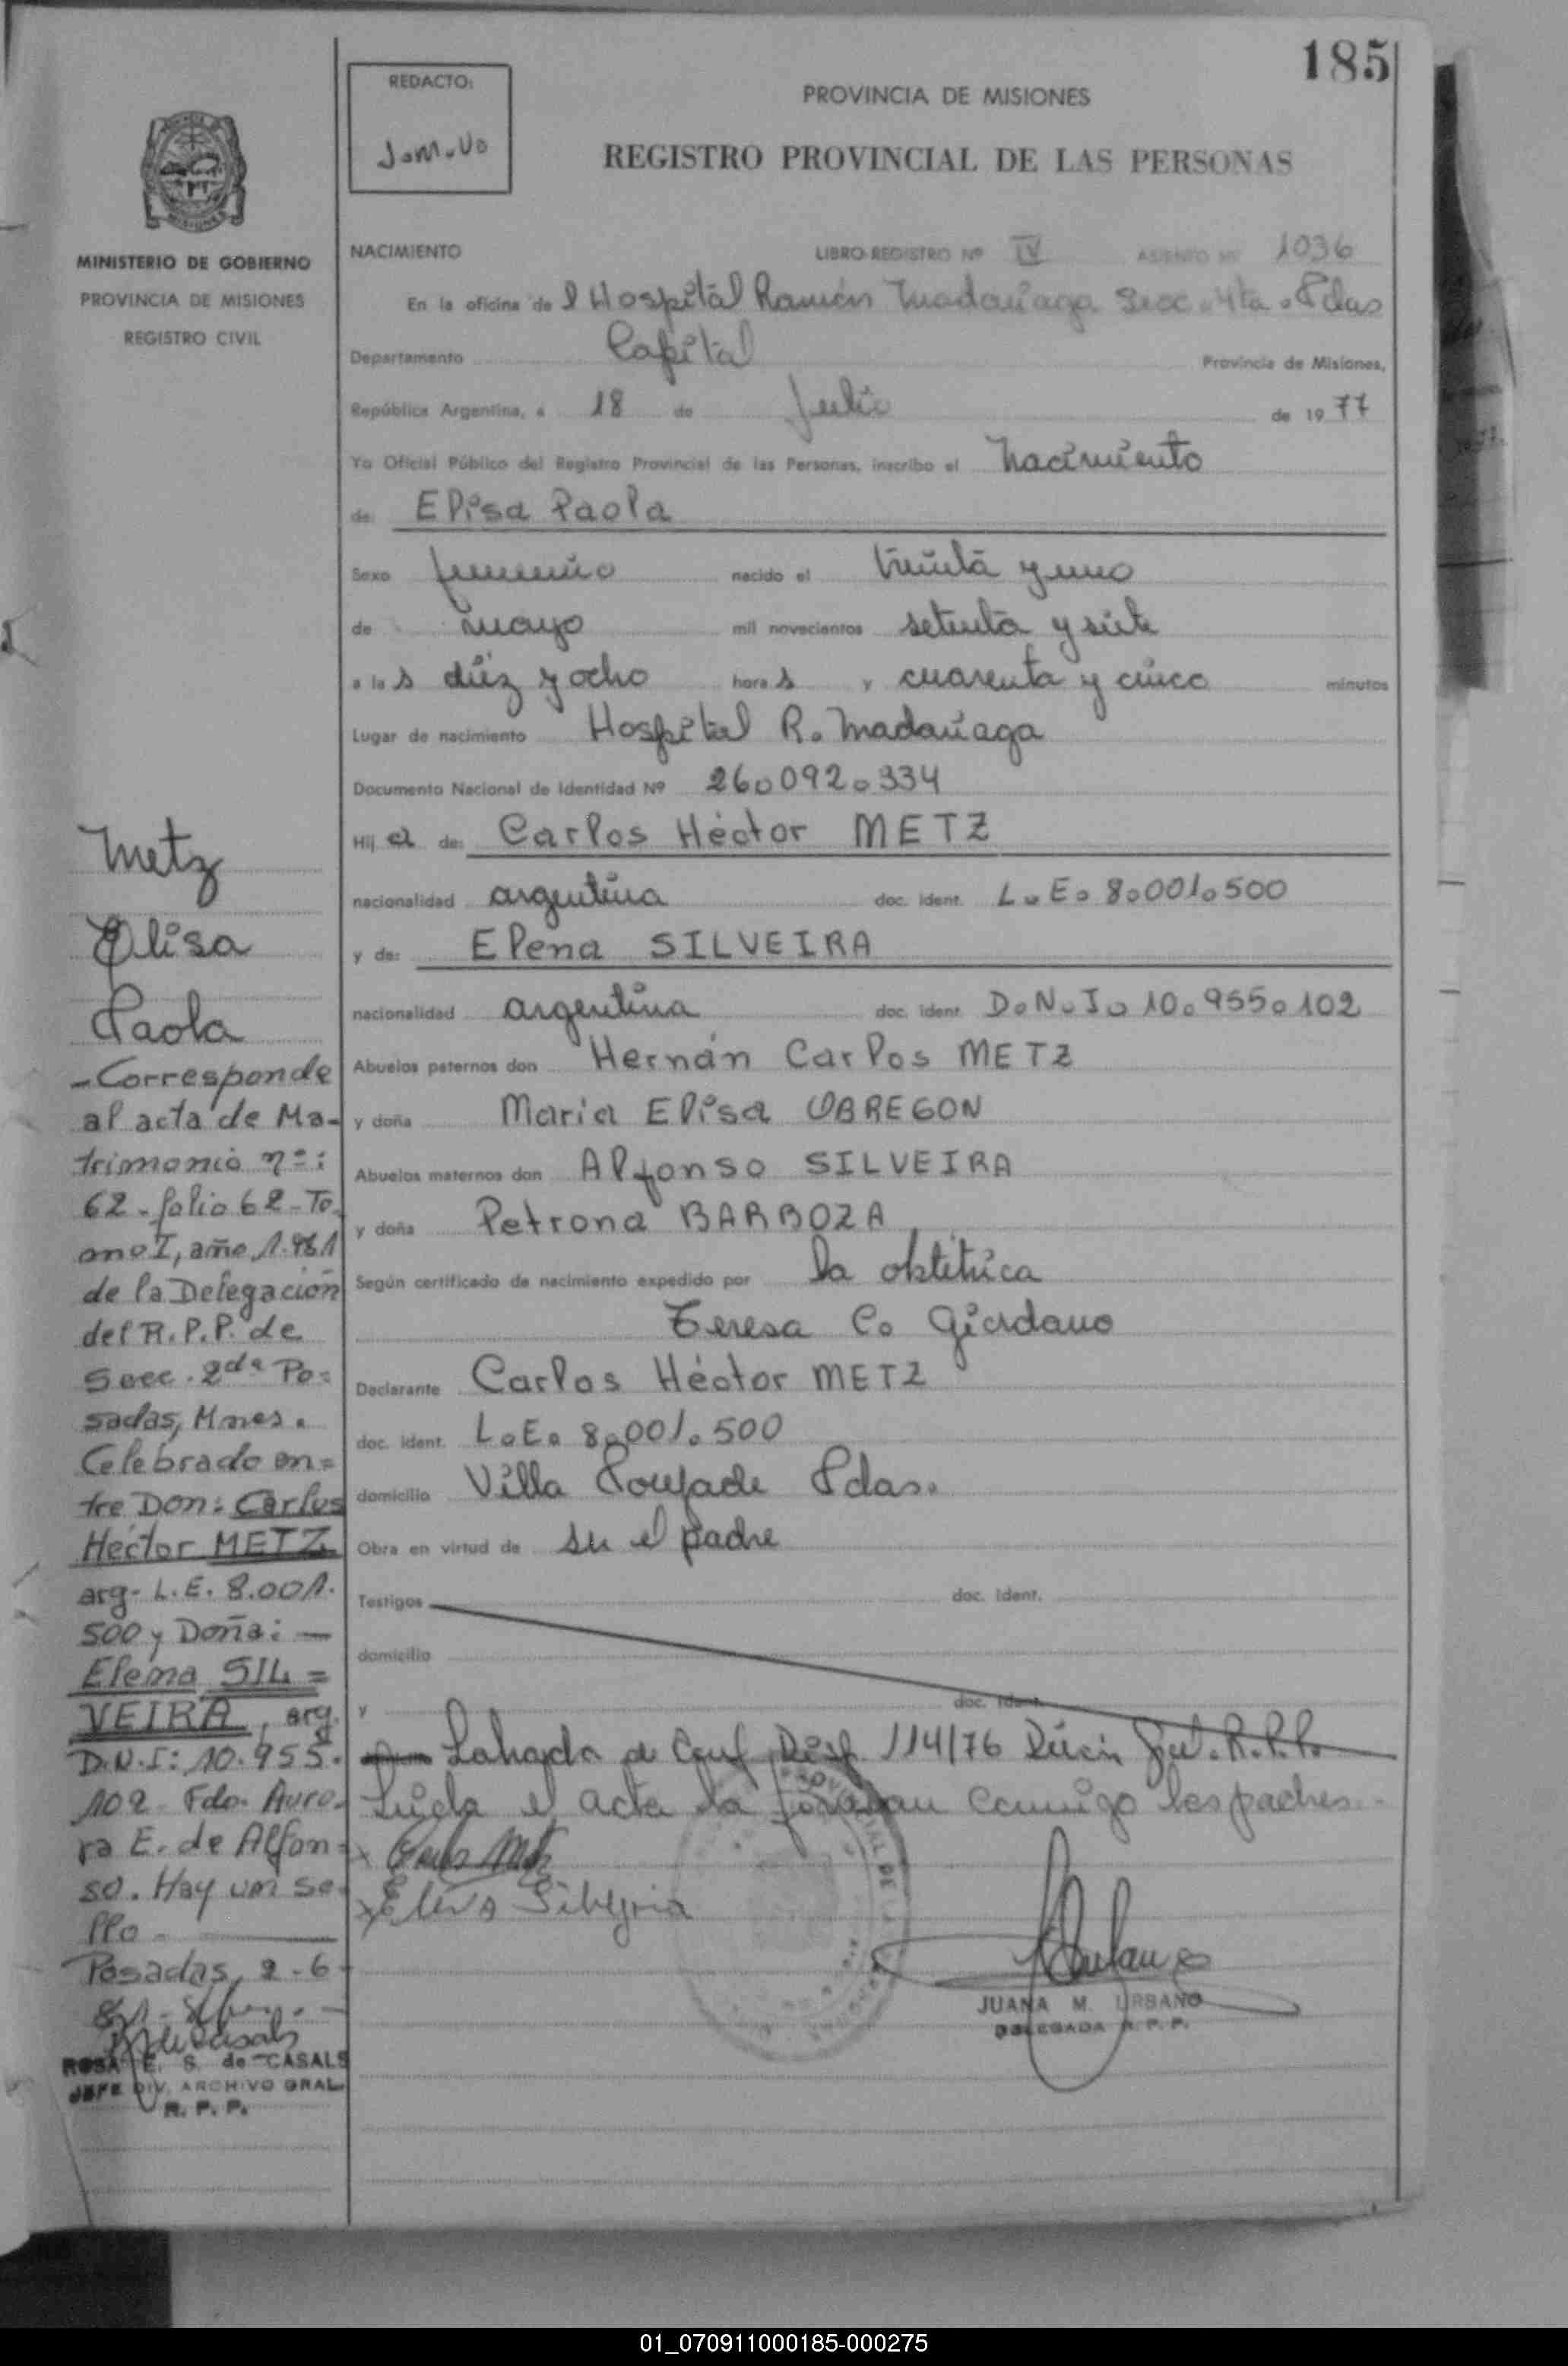 185
REDACTO:
J.M.U.
PROVINCIA DE MISIONES
REGISTRO PROVINCIAL DE LAS PERSONAS
MISIONES
MINISTERIO DE GOBIERNO
PROVINCIA DE MISIONES
REGISTRO CIVIL
NACIMIENTO LIBRO-REGISTRO Nº IV ASIENTO Nº 1036
En la oficina de l Hospital Ramón Madariaga Secc. 4ta. Pdas
Departamento Capital Provincia de Misiones,
República Argentina, a 18 de Julio de 1977
Yo Oficial Público del Registro Provincial de las Personas, inscribo el nacimiento
de: Elisa Paola
Sexo femenino nacido el treinta y uno
de mayo mil novecientos setenta y siete
a las diez y ocho horas y cuarenta y cinco minutos
Lugar de nacimiento Hospital R. Madariaga
Documento Nacional de Identidad Nº 26.092.334
Hija de: Carlos Héctor METZ
nacionalidad argentina doc. ident. L.E. 8.001.500
y de: Elena SILVEIRA
nacionalidad argentina doc. ident. D.N.I. 10.955.102
Abuelos paternos don Hernán Carlos METZ
y doña Maria Elisa OBREGON
Abuelos maternos don Alfonso SILVEIRA
y doña Petrona BARBOZA
Según certificado de nacimiento expedido por la obstétrica
Teresa C. Giordano
Declarante Carlos Héctor METZ
doc. ident. L.E. 8.001.500
domicilio Villa Poujade Pdas.
Obra en virtud de ser el padre
Testigos doc. ident.
domicilio
y doc. ident.
Labrada de Conf. Disp. 114/76 Direcc. Gral. R.P.P.
Leida el acta la firman conmigo los padres.
x Carlos Metz
x Elena
JUANA M. URBANO
DELEGADA R. P. P.
Metz
Elisa
Paola
- Corresponde
al acta de Ma-
trimonio nº:
62 - folio 62 - To
mo I, año 1.981
de la Delegación
del R.P.P. de
Secc. 2da Po=
sadas, Mnes.
Celebrado en=
tre Don: Carlos
Héctor METZ
arg- L.E. 8.001.
500 y Doña: —
Elena SIL=
VEIRA, arg.
D.N.I: 10.955.
102 - Fdo. Auro-
ra E. de Alfon=
so. Hay un se-
llo
Posadas, 2-6-
81 -
ROSA E. S. de CASALS
JEFE DIV. ARCHIVO GRAL.
R. P. P.
01_070911000185-000275